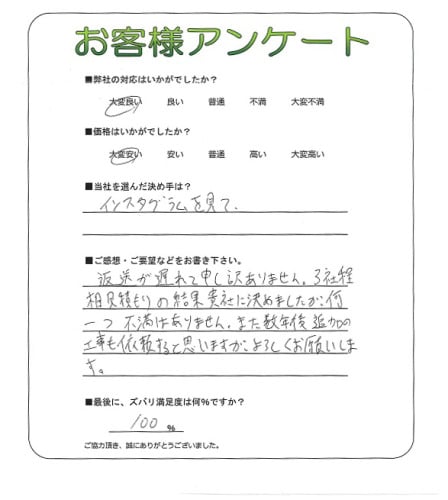 お客様アンケート
■弊社の対応はいかがでしたか？
大変良い 良い 普通 不満 大変不満
■価格はいかがでしたか？
大変安い 安い 普通 高い 大変高い
■当社を選んだ決め手は？
インスタグラムを見て、
■ご感想・ご要望などをお書き下さい。
返送が遅れて申し訳ありません。3社程
相見積もりの結果貴社に決めましたが、何
一つ不満はありません。また数年後追加の
工事も依頼すると思いますが、よろしくお願いしま
す。
■最後に、ズバリ満足度は何%ですか？
100 %
ご協力頂き、誠にありがとうございました。